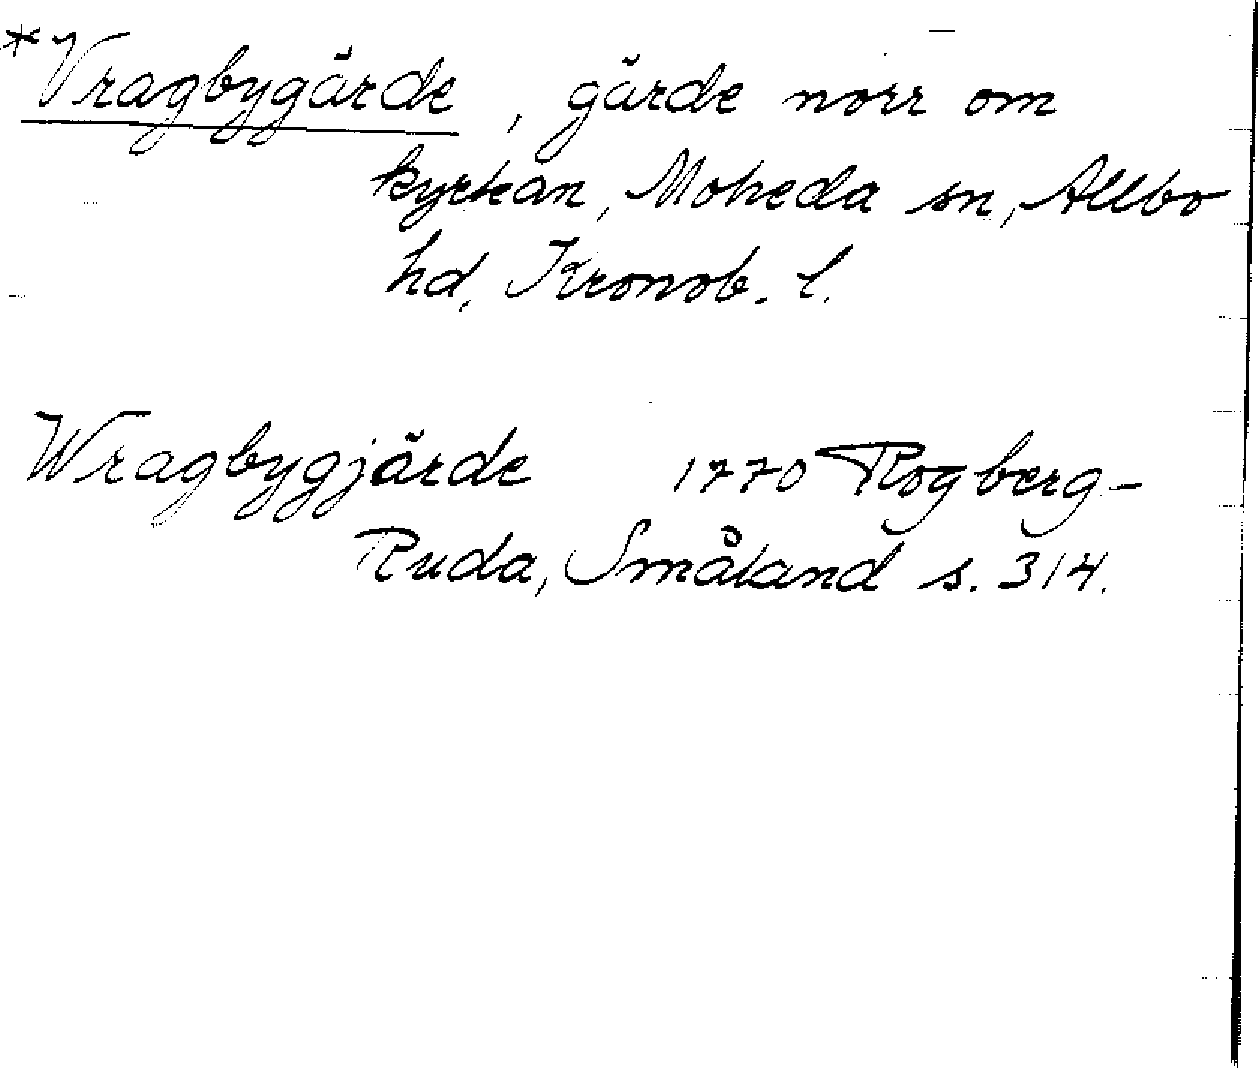 *Vragbygärde, gärde norr om
kyrkan, Moheda sn, Allbo
hd, Kronob. l.
Wragbygjärde 1770 Rogberg-
Ruda, Småland s. 314.